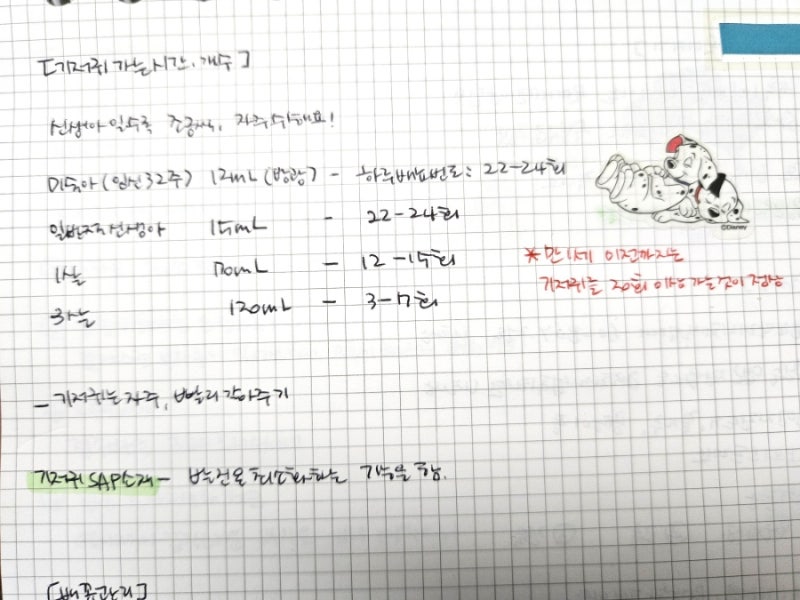 [기저귀 가는시간, 개수]
신생아일수록 조금씩, 자주 쉬해요!
미숙아(임신32주) 12mL (방광) - 하루배뇨번도: 22-24회
일반적신생아 15mL - 22-24회
1살 70mL - 12-15회
3살 120mL - 3-7회
*만 1세 이전까지는
기저귀를 20회 이상 가는것이 정상
©Disney
- 기저귀는 자주, 빨리 갈아주기
기저귀 SAP소재 - 발진을 최소화하는 기능을 함.
[배꼽관리]